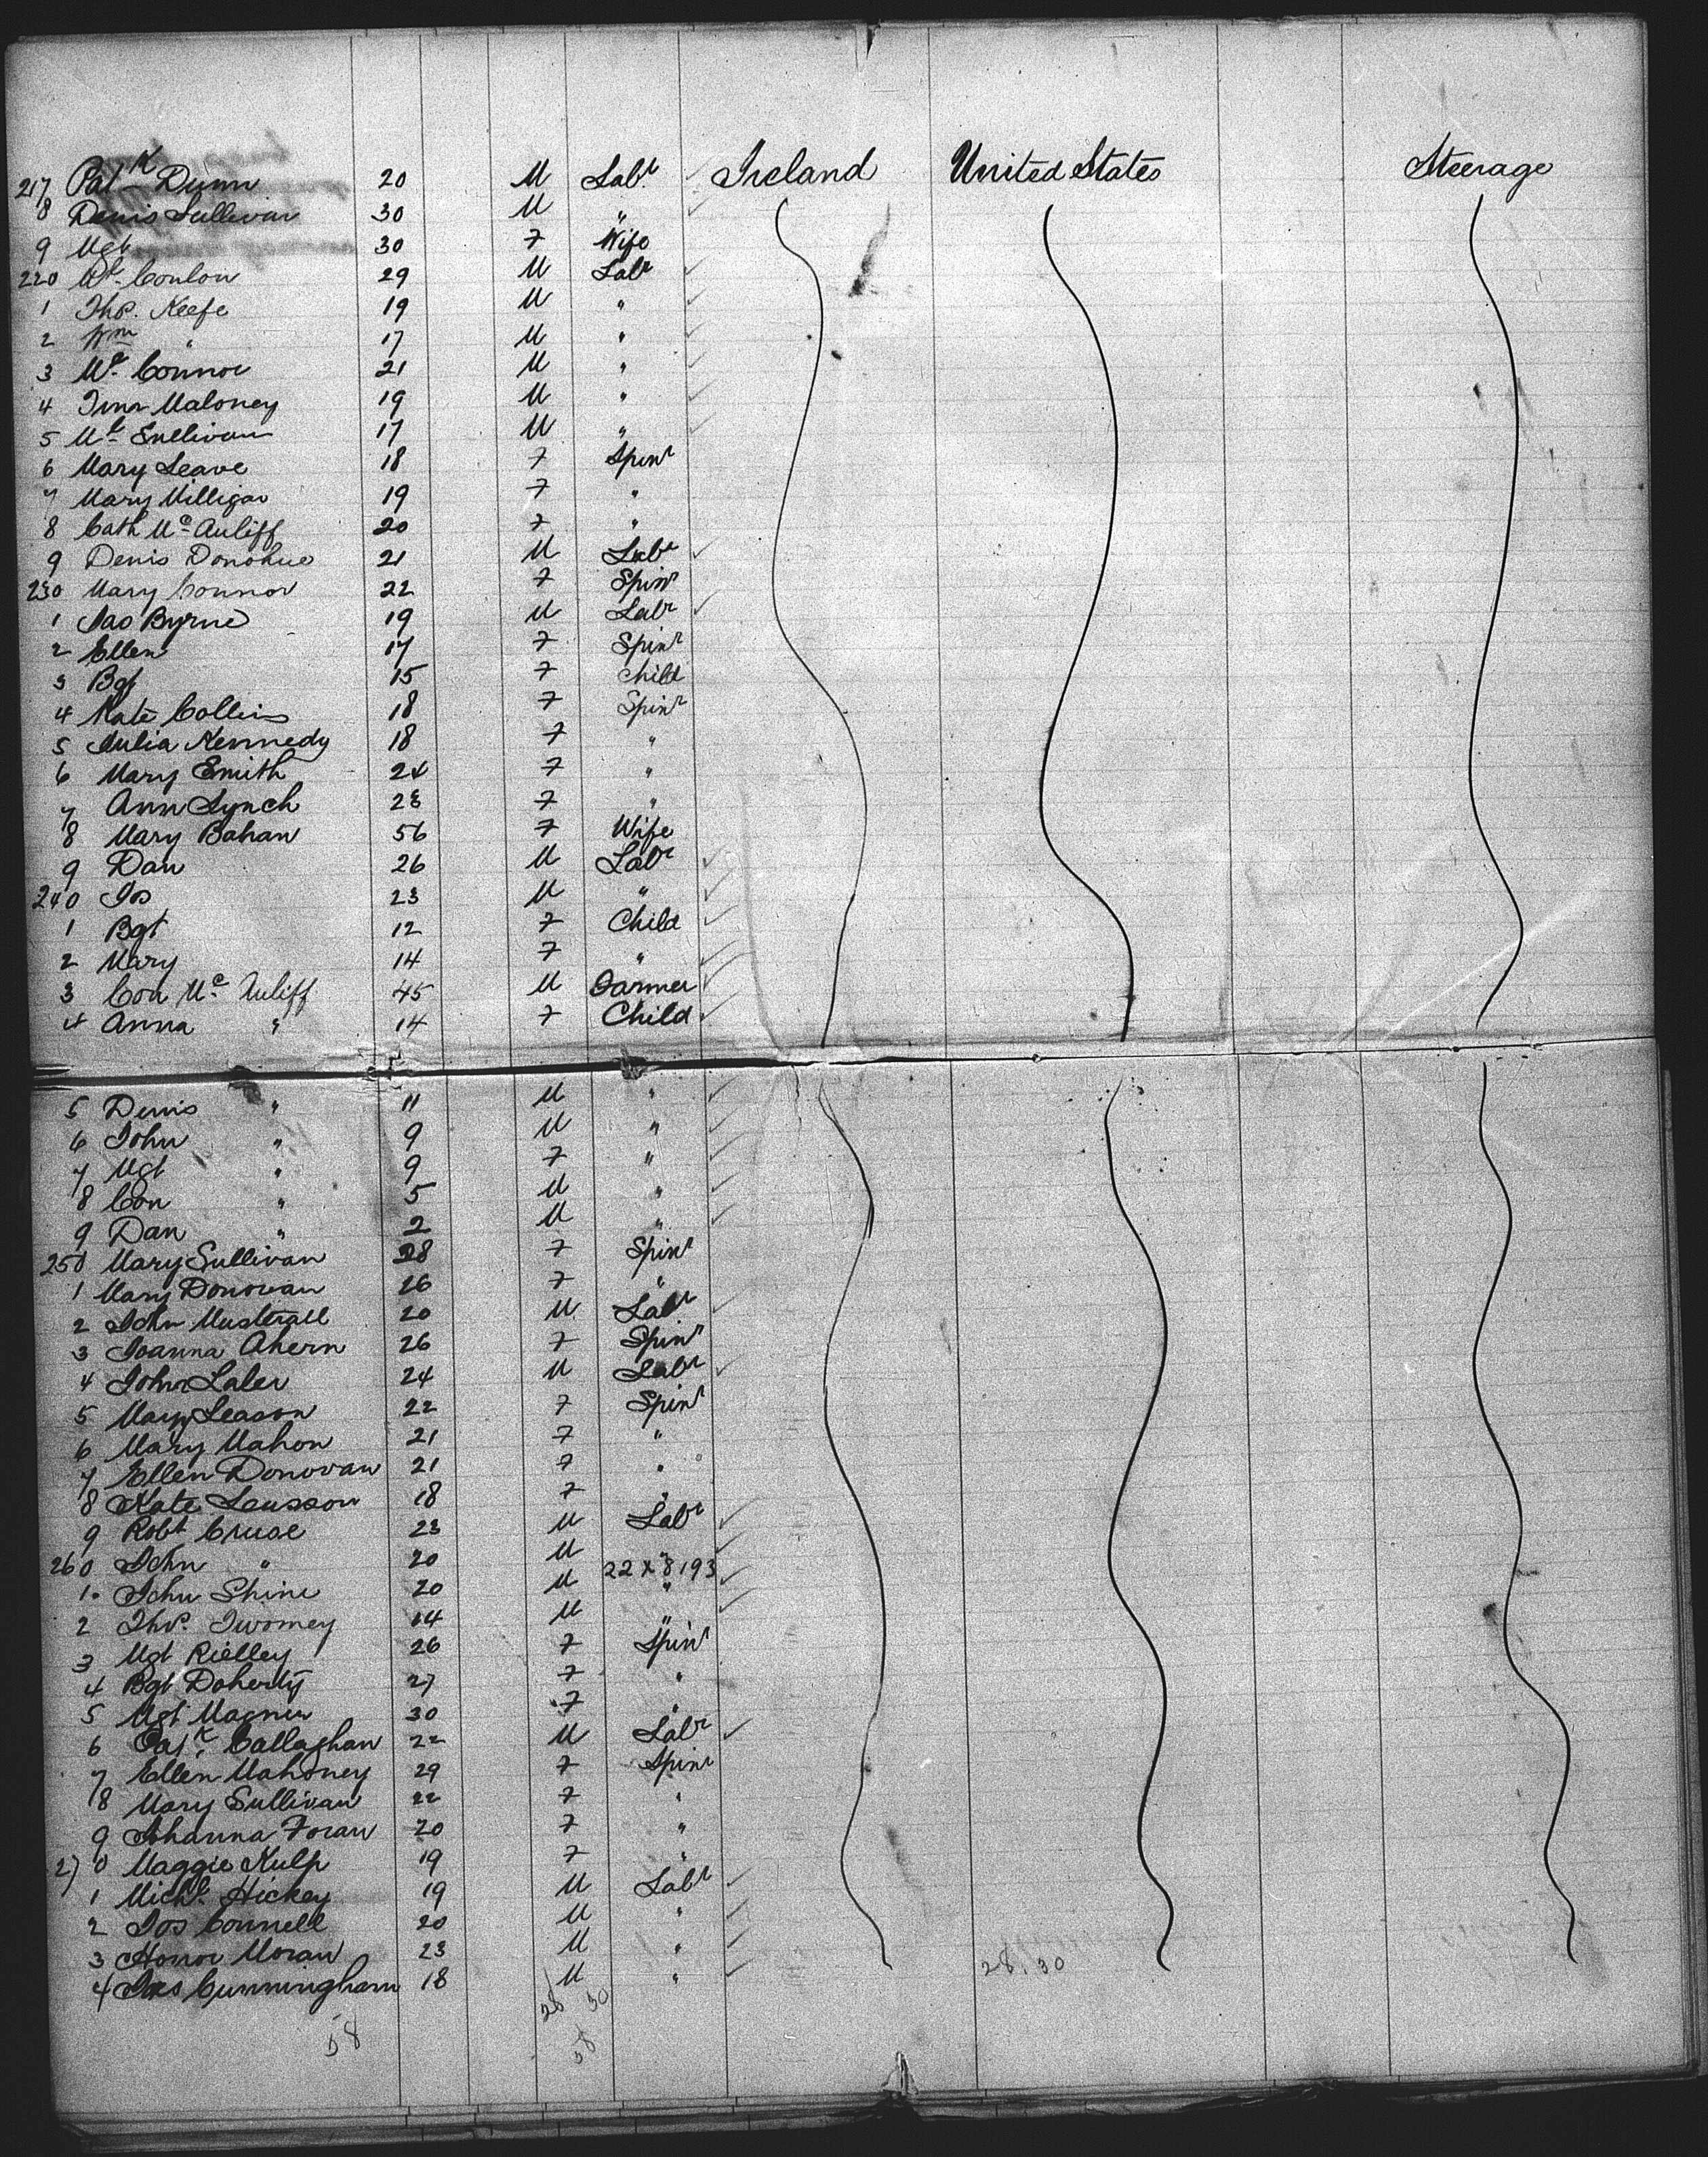 217 Patk Dunn 20 M Labr Ireland United States Steerage
8 Denis Sullivan 30 M "
9 Mgt 30 F Wife
220 Ml Conlon 29 M Labr
1 Thos. Keefe 19 M "
2 Wm " 17 M "
3 Ml Connor 21 M "
4 Timr Maloney 19 M "
5 Ml Sullivan 17 M "
6 Mary Leave 18 F Spinr
7 Mary Milligan 19 F "
8 Cath Mc Auliff 20 F "
9 Denis Donohue 21 M Labr
230 Mary Connor 22 F Spinr
1 Jas Byrne 19 M Labr
2 Ellen 17 F Spinr
3 Bgt 15 F Child
4 Kate Collins 18 F Spinr
5 Julia Kennedy 18 F "
6 Mary Smith 24 F "
7 Ann Lynch 23 F "
8 Mary Bahan 56 F Wife
9 Dan 26 M Labr
240 Jos 23 M "
1 Bgt 12 F Child
2 Mary 14 F "
3 Con Mc Auliff 45 M Farmer
4 Anna " 14 F Child
5 Denis " 11 M "
6 John " 9 M "
7 Mgt " 9 F "
8 Con " 5 M "
9 Dan " 2 M "
250 Mary Sullivan 28 F Spinr
1 Mary Donovan 26 F "
2 John 20 M Labr
3 Joanna Ahern 26 F Spinr
4 John Laler 24 M Labr
5 Mary Leason 22 F Spinr
6 Mary Mahon 21 F "
7 Ellen Donovan 21 F "
8 Kate 18 F "
9 Robt Cruse 23 M Labr
260 John " 20 M "
22 X 8193
1 John Shine 20 M "
2 Thos. Twomey 14 M "
3 Mgt Rielley 26 F Spinr
4 Bgt Doherty 27 F "
5 Mgt Magner 30 F "
6 Patk Callaghan 22 M Labr
7 Ellen Mahoney 29 F Spinr
8 Mary Sullivan 22 F "
9 Johanna Foran 20 F "
270 Maggie Kulp 19 F "
1 Michl Hickey 19 M Labr
2 Jos Connell 20 M "
3 Honor Moran 23 M "
4 Jas Cunningham 18 M "
28 30
28.30
58
58